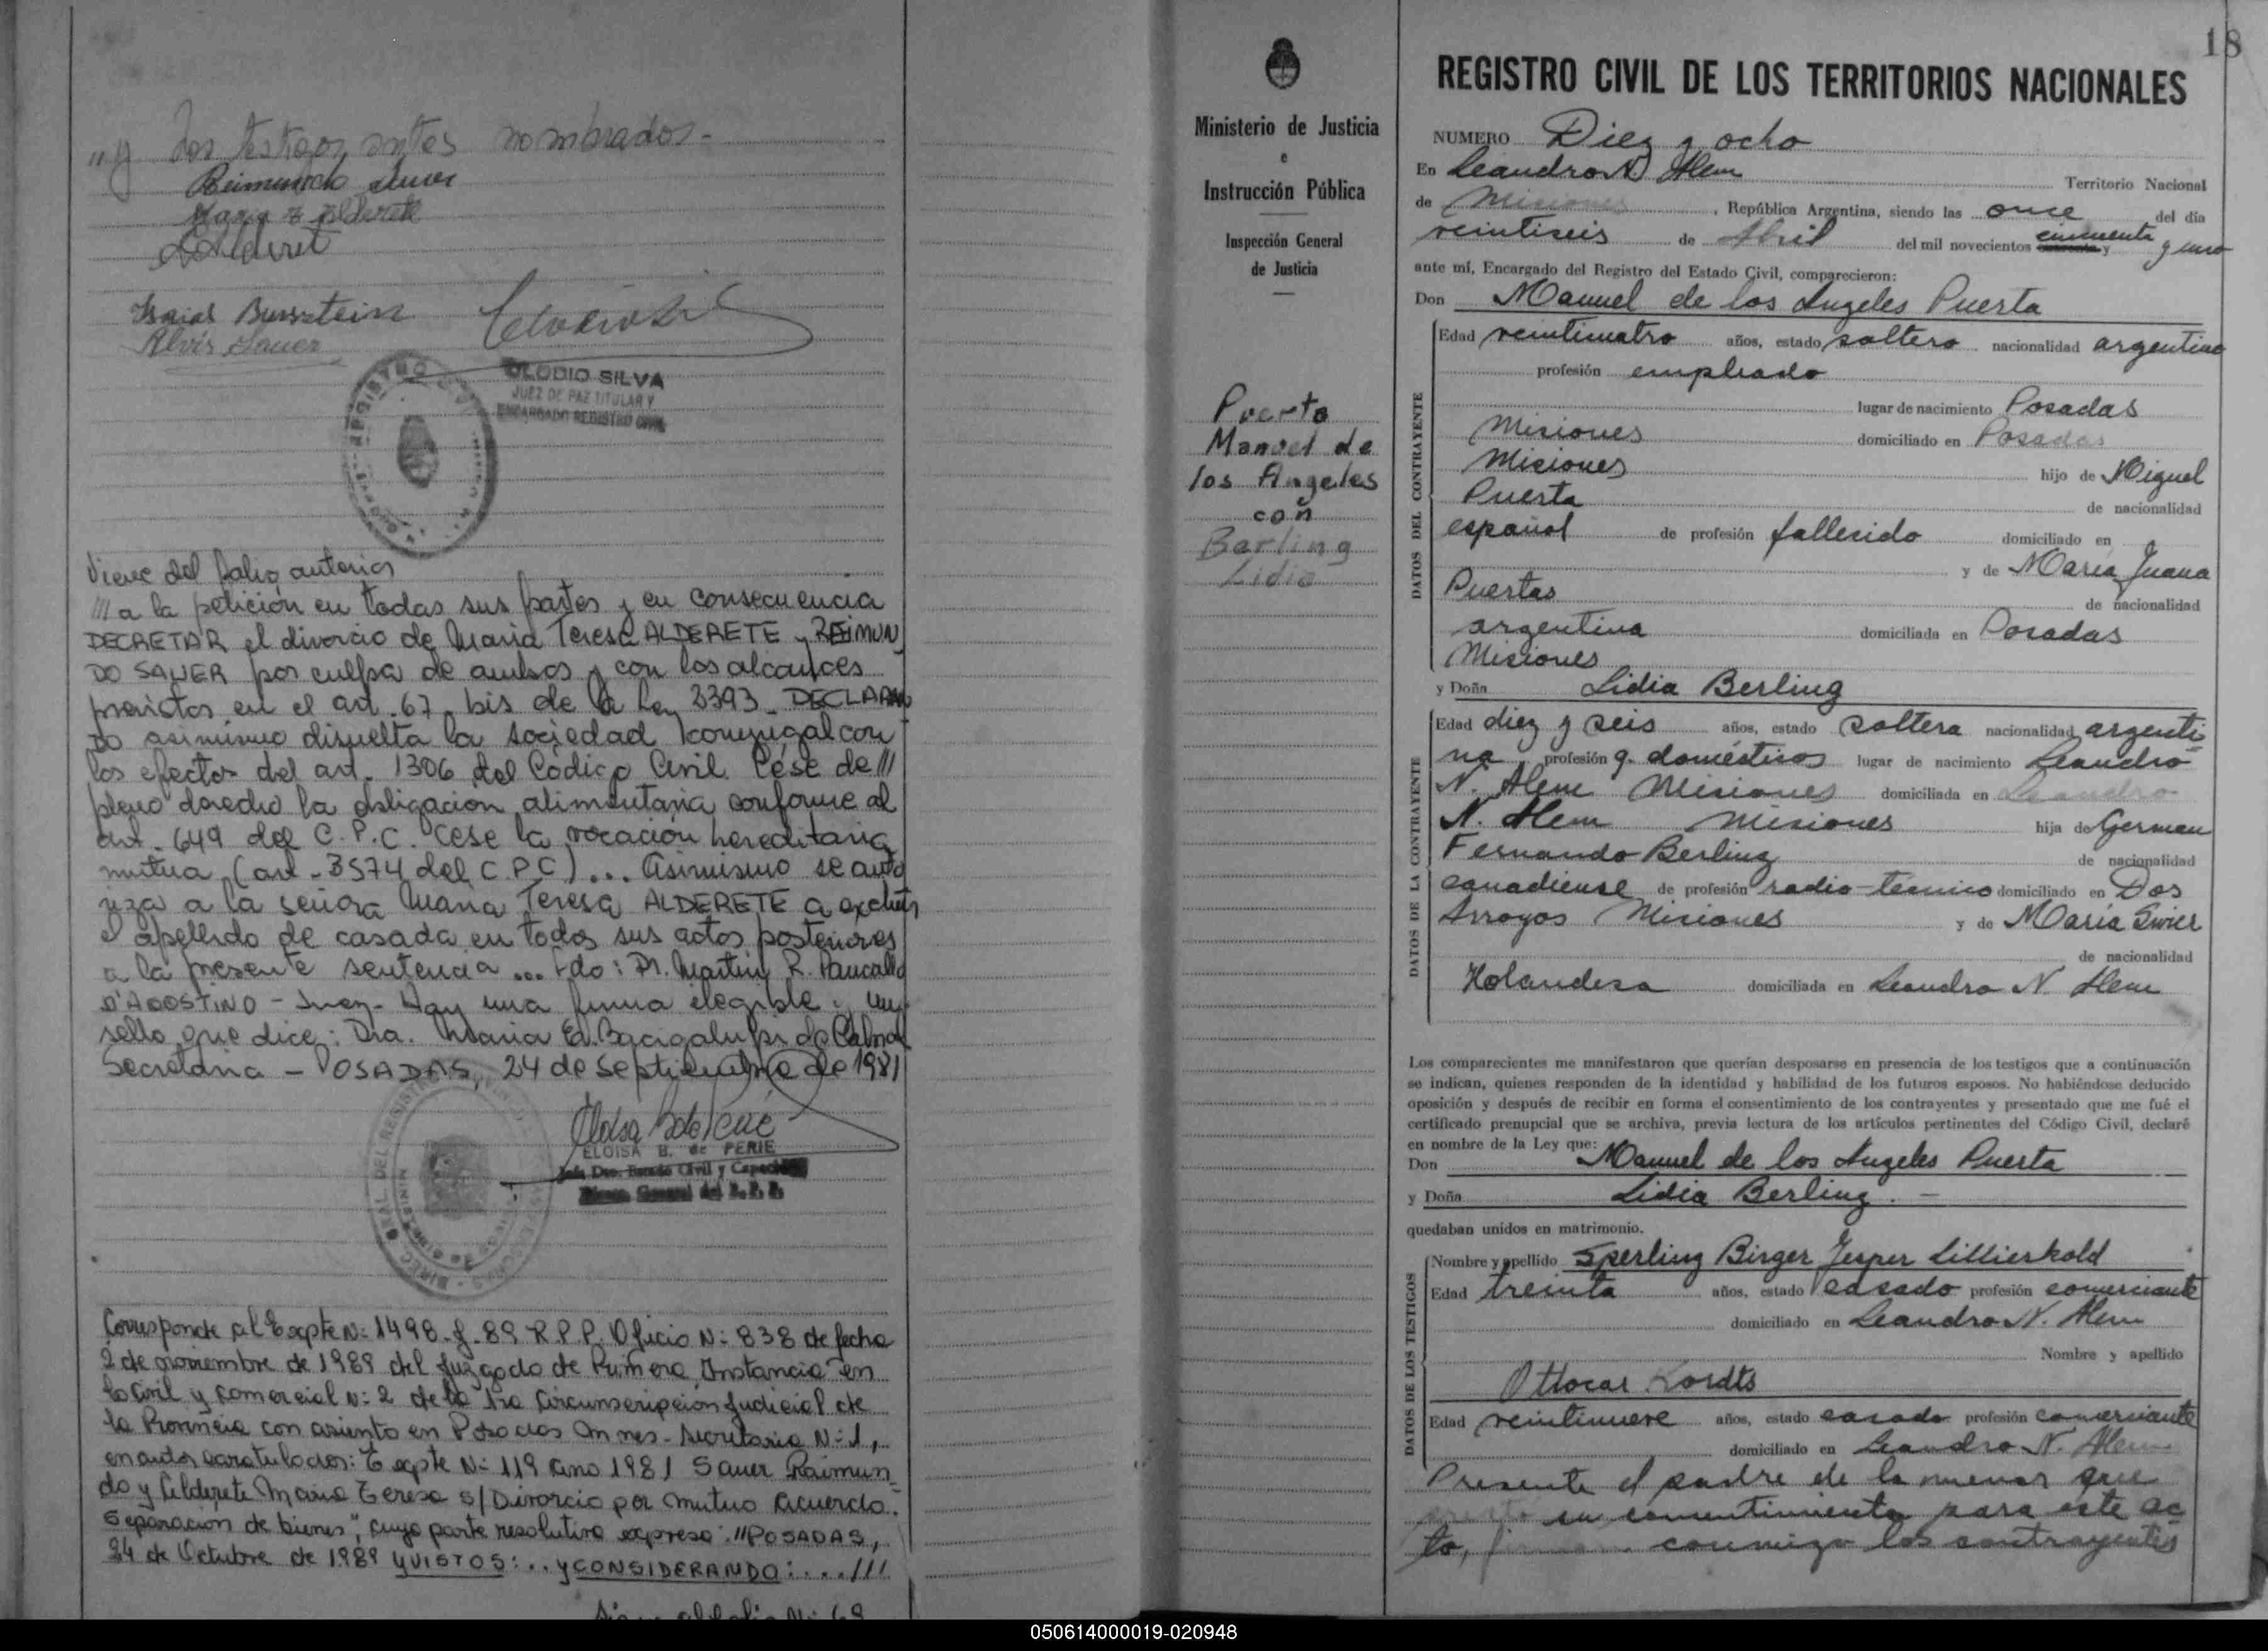 "y los testigos antes nombrados.-
Reimundo Sauer
Maria T Alderete
Alderete
Isaias Bursztein
Alvis Sauer
CLODIO SILVA
JUEZ DE PAZ TITULAR Y
ENCARGADO REGISTRO CIVIL
Viene del folio anterior
/// a la petición en todas sus partes y en consecuencia
DECRETAR el divorcio de María Teresa ALDERETE y REIMUN
DO SAUER por culpa de ambos y con los alcances
previstos en el art. 67 bis de la Ley 2393 - DECLARAN
DO asimismo disuelta la sociedad conyugal con
los efectos del art. 1306 del Código Civil. Cése de ///
pleno derecho la obligación alimentaria conforme al
art. 649 del C.P.C. Cese la vocación hereditaria
mutua (art - 3574 del C.P.C)... Asimismo se auto
riza a la señora María Teresa ALDERETE a excluir
el apellido de casada en todos sus actos posteriores
a la presente sentencia ... Fdo: Dr. Martin R.
D'AGOSTINO - Juez - Hay una firma elegible y un
sello que dice: Dra. Maria E. Bacigalupi de Cabral
Secretaria - POSADAS, 24 de Septiembre de 1981
ELOISA B. de PERIE
Jefa Dto. Estado Civil y Capacidad
Direcc. General del R. P. P.
Corresponde al Expte Nº 1498-J-89 R.P.P. Oficio Nº 838 de fecha
2 de noviembre de 1989 del Juzgado de Primera Instancia en
lo Civil y Comercial Nº 2 de la 1ra Circunscripción Judicial de
la Provincia con asiento en Posadas Mnes - Secretaria Nº 1,
en autos caratulados: Expte Nº 119 año 1981 Sauer Raimun
do y Alderete Maria Teresa s/Divorcio por mutuo Acuerdo.
Separación de bienes", cuya parte resolutiva expresa: "POSADAS,
24 de Octubre de 1989 Y VISTOS: .. y CONSIDERANDO: ....///
Sigue al folio Nº 68
Ministerio de Justicia
e
Instrucción Pública
Inspección General
de Justicia
Puerta
Manuel de
los Angeles
con
Berling
Lidia
18
REGISTRO CIVIL DE LOS TERRITORIOS NACIONALES
NUMERO Diez y ocho
En Leandro N. Alem Territorio Nacional
de Misiones, República Argentina, siendo las once del día
veintiseis de Abril del mil novecientos cincuenta y uno
ante mí, Encargado del Registro del Estado Civil, comparecieron:
Don Manuel de los Angeles Puerta
DATOS DEL CONTRAYENTE
Edad veinticuatro años, estado soltero nacionalidad argentino
profesión empleado
lugar de nacimiento Posadas
Misiones domiciliado en Posadas
Misiones hijo de Miguel
Puerta de nacionalidad
español de profesión fallecido domiciliado en
y de María Juana
Puertas de nacionalidad
argentina domiciliada en Posadas
Misiones
y Doña Lidia Berling
DATOS DE LA CONTRAYENTE
Edad diez y seis años, estado soltera nacionalidad argenti-
na profesión q. domésticos lugar de nacimiento Leandro
N. Alem Misiones domiciliada en Leandro
N. Alem Misiones hija de German
Fernando Berling de nacionalidad
canadiense de profesión radio-tecnico domiciliado en Dos
Arroyos Misiones y de María Swier
de nacionalidad
Holandesa domiciliada en Leandro N. Alem
Los comparecientes me manifestaron que querían desposarse en presencia de los testigos que a continuación
se indican, quienes responden de la identidad y habilidad de los futuros esposos. No habiéndose deducido
oposición y después de recibir en forma el consentimiento de los contrayentes y presentado que me fué el
certificado prenupcial que se archiva, previa lectura de los artículos pertinentes del Código Civil, declaré
en nombre de la Ley que:
Don Manuel de los Angeles Puerta
y Doña Lidia Berling. -
quedaban unidos en matrimonio.
DATOS DE LOS TESTIGOS
Nombre y apellido Sperling Birger Jesper Lillieskold
Edad treinta años, estado casado profesión comerciante
domiciliado en Leandro N. Alem
Nombre y apellido
Ottocar Lordts
Edad veintinueve años, estado casado profesión comerciante
domiciliado en Leandro N. Alem
Presente el padre de la menor que
presta su consentimiento para este ac
to, firman conmigo los contrayentes
050614000019-020948